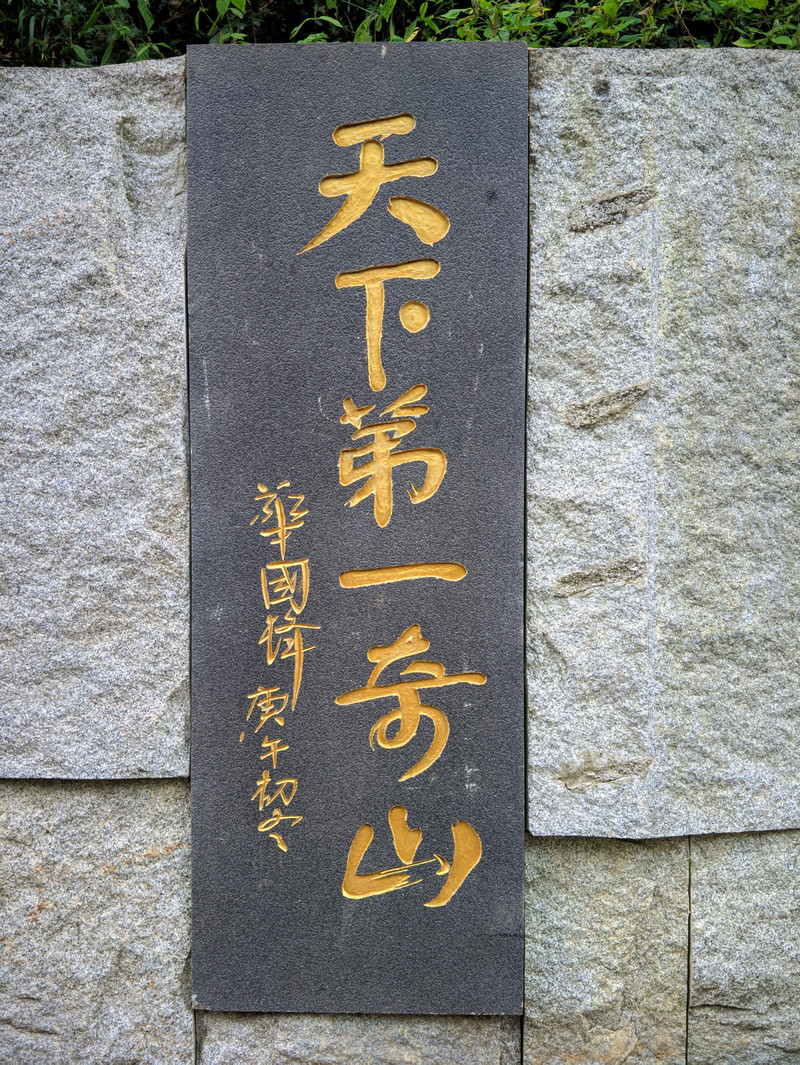 天下第一奇山
華國鋒 庚午初冬